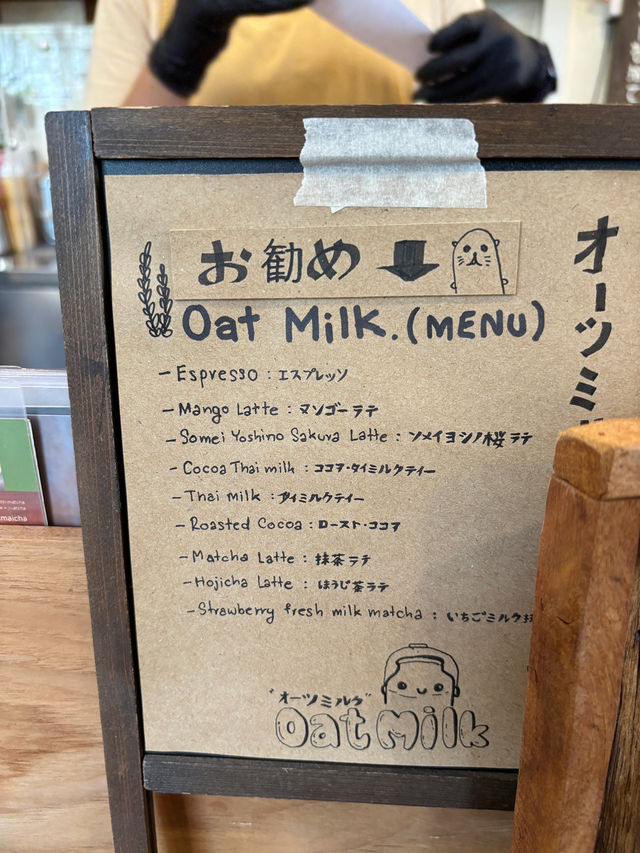 お勧め
Oat Milk. (MENU)
- Espresso : エスプレッソ
- Mango Latte : マンゴーラテ
- Somei Yoshino Sakura Latte : ソメイヨシノ桜ラテ
- Cocoa Thai milk : ココア・タイミルクティー
- Thai milk : タイミルクティー
- Roasted Cocoa : ロースト・ココア
- Matcha Latte : 抹茶ラテ
- Hojicha Latte : ほうじ茶ラテ
- Strawberry fresh milk matcha : いちごミルク
"オーツミルク"
Oat Milk
オーツミ